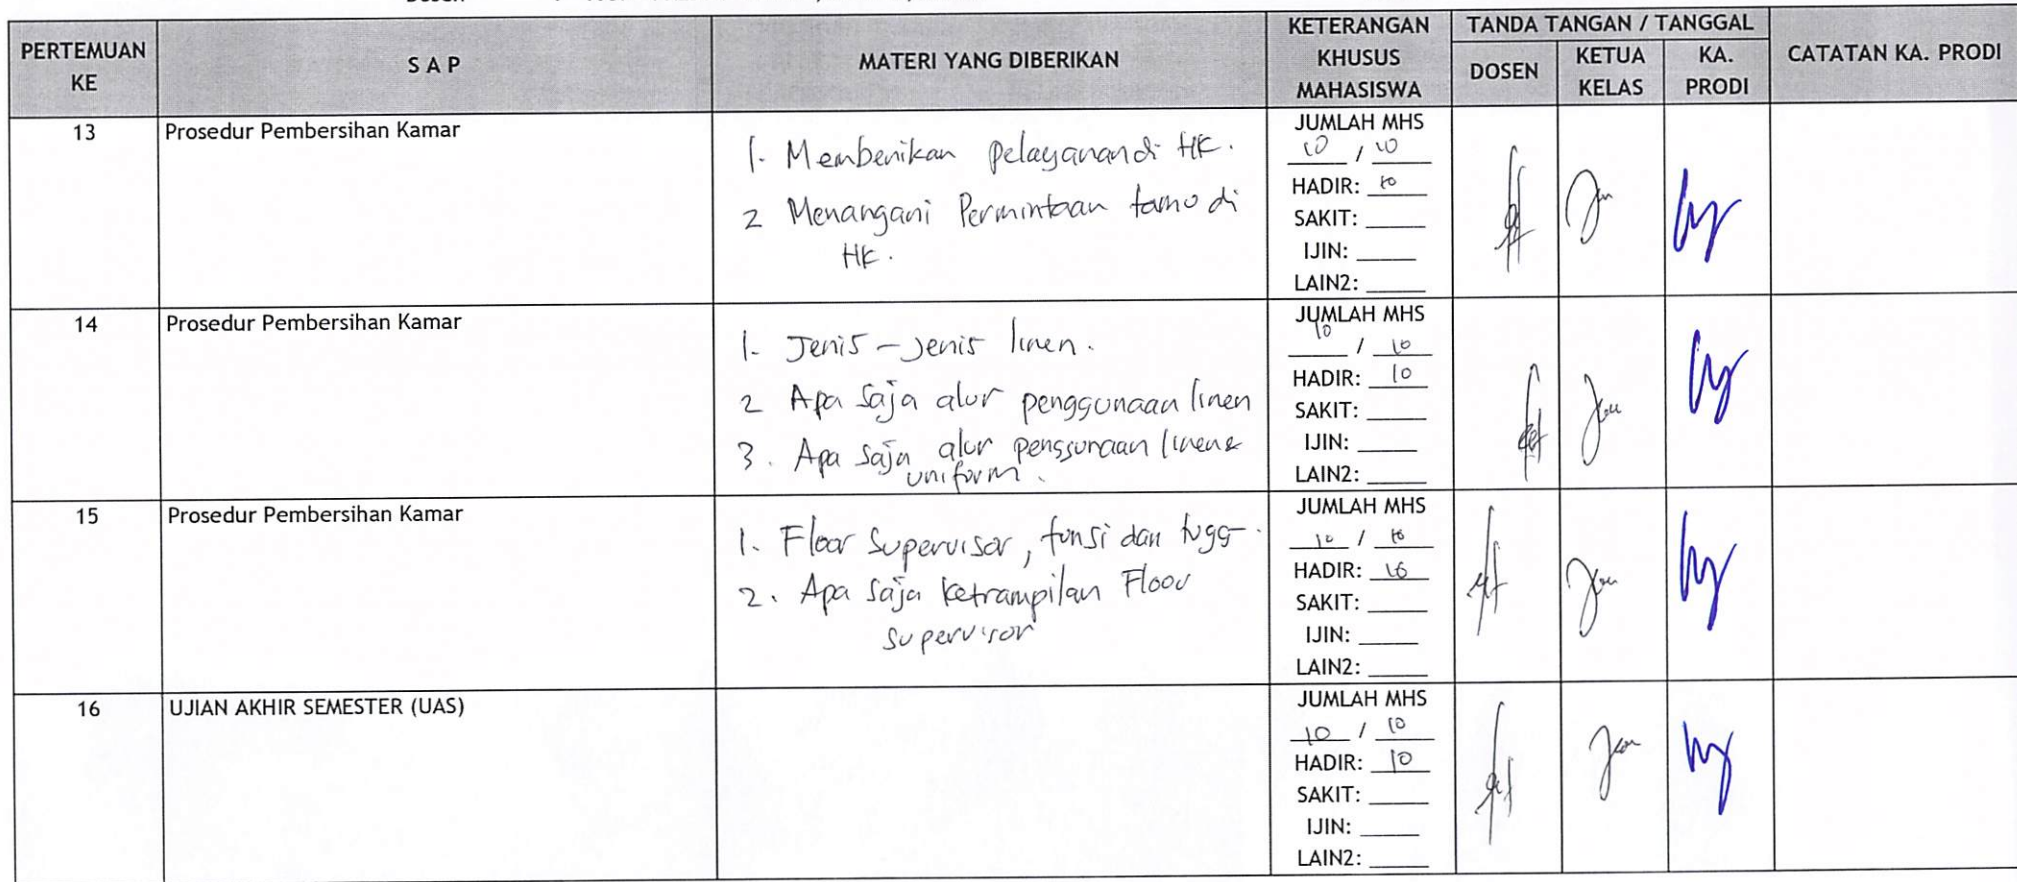 Dosen
PERTEMUAN KE
S A P
MATERI YANG DIBERIKAN
KETERANGAN KHUSUS MAHASISWA
TANDA TANGAN / TANGGAL
DOSEN
KETUA KELAS
KA. PRODI
CATATAN KA. PRODI
13
Prosedur Pembersihan Kamar
1. Memberikan pelayanan di HK.
2 Menangani Permintaan tamu di
HK.
JUMLAH MHS
10 / 10
HADIR: 10
SAKIT:
IJIN:
LAIN2:
14
Prosedur Pembersihan Kamar
1. Jenis - Jenis linen.
2 Apa saja alur penggunaan linen
3. Apa saja alur penggunaan linen &
uniform.
JUMLAH MHS
10 / 10
HADIR: 10
SAKIT:
IJIN:
LAIN2:
15
Prosedur Pembersihan Kamar
1. Floor Supervisor, funsi dan
2. Apa saja ketrampilan Floor
supervisor
JUMLAH MHS
10 / 10
HADIR: 10
SAKIT:
IJIN:
LAIN2:
16
UJIAN AKHIR SEMESTER (UAS)
JUMLAH MHS
10 / 10
HADIR: 10
SAKIT:
IJIN:
LAIN2: